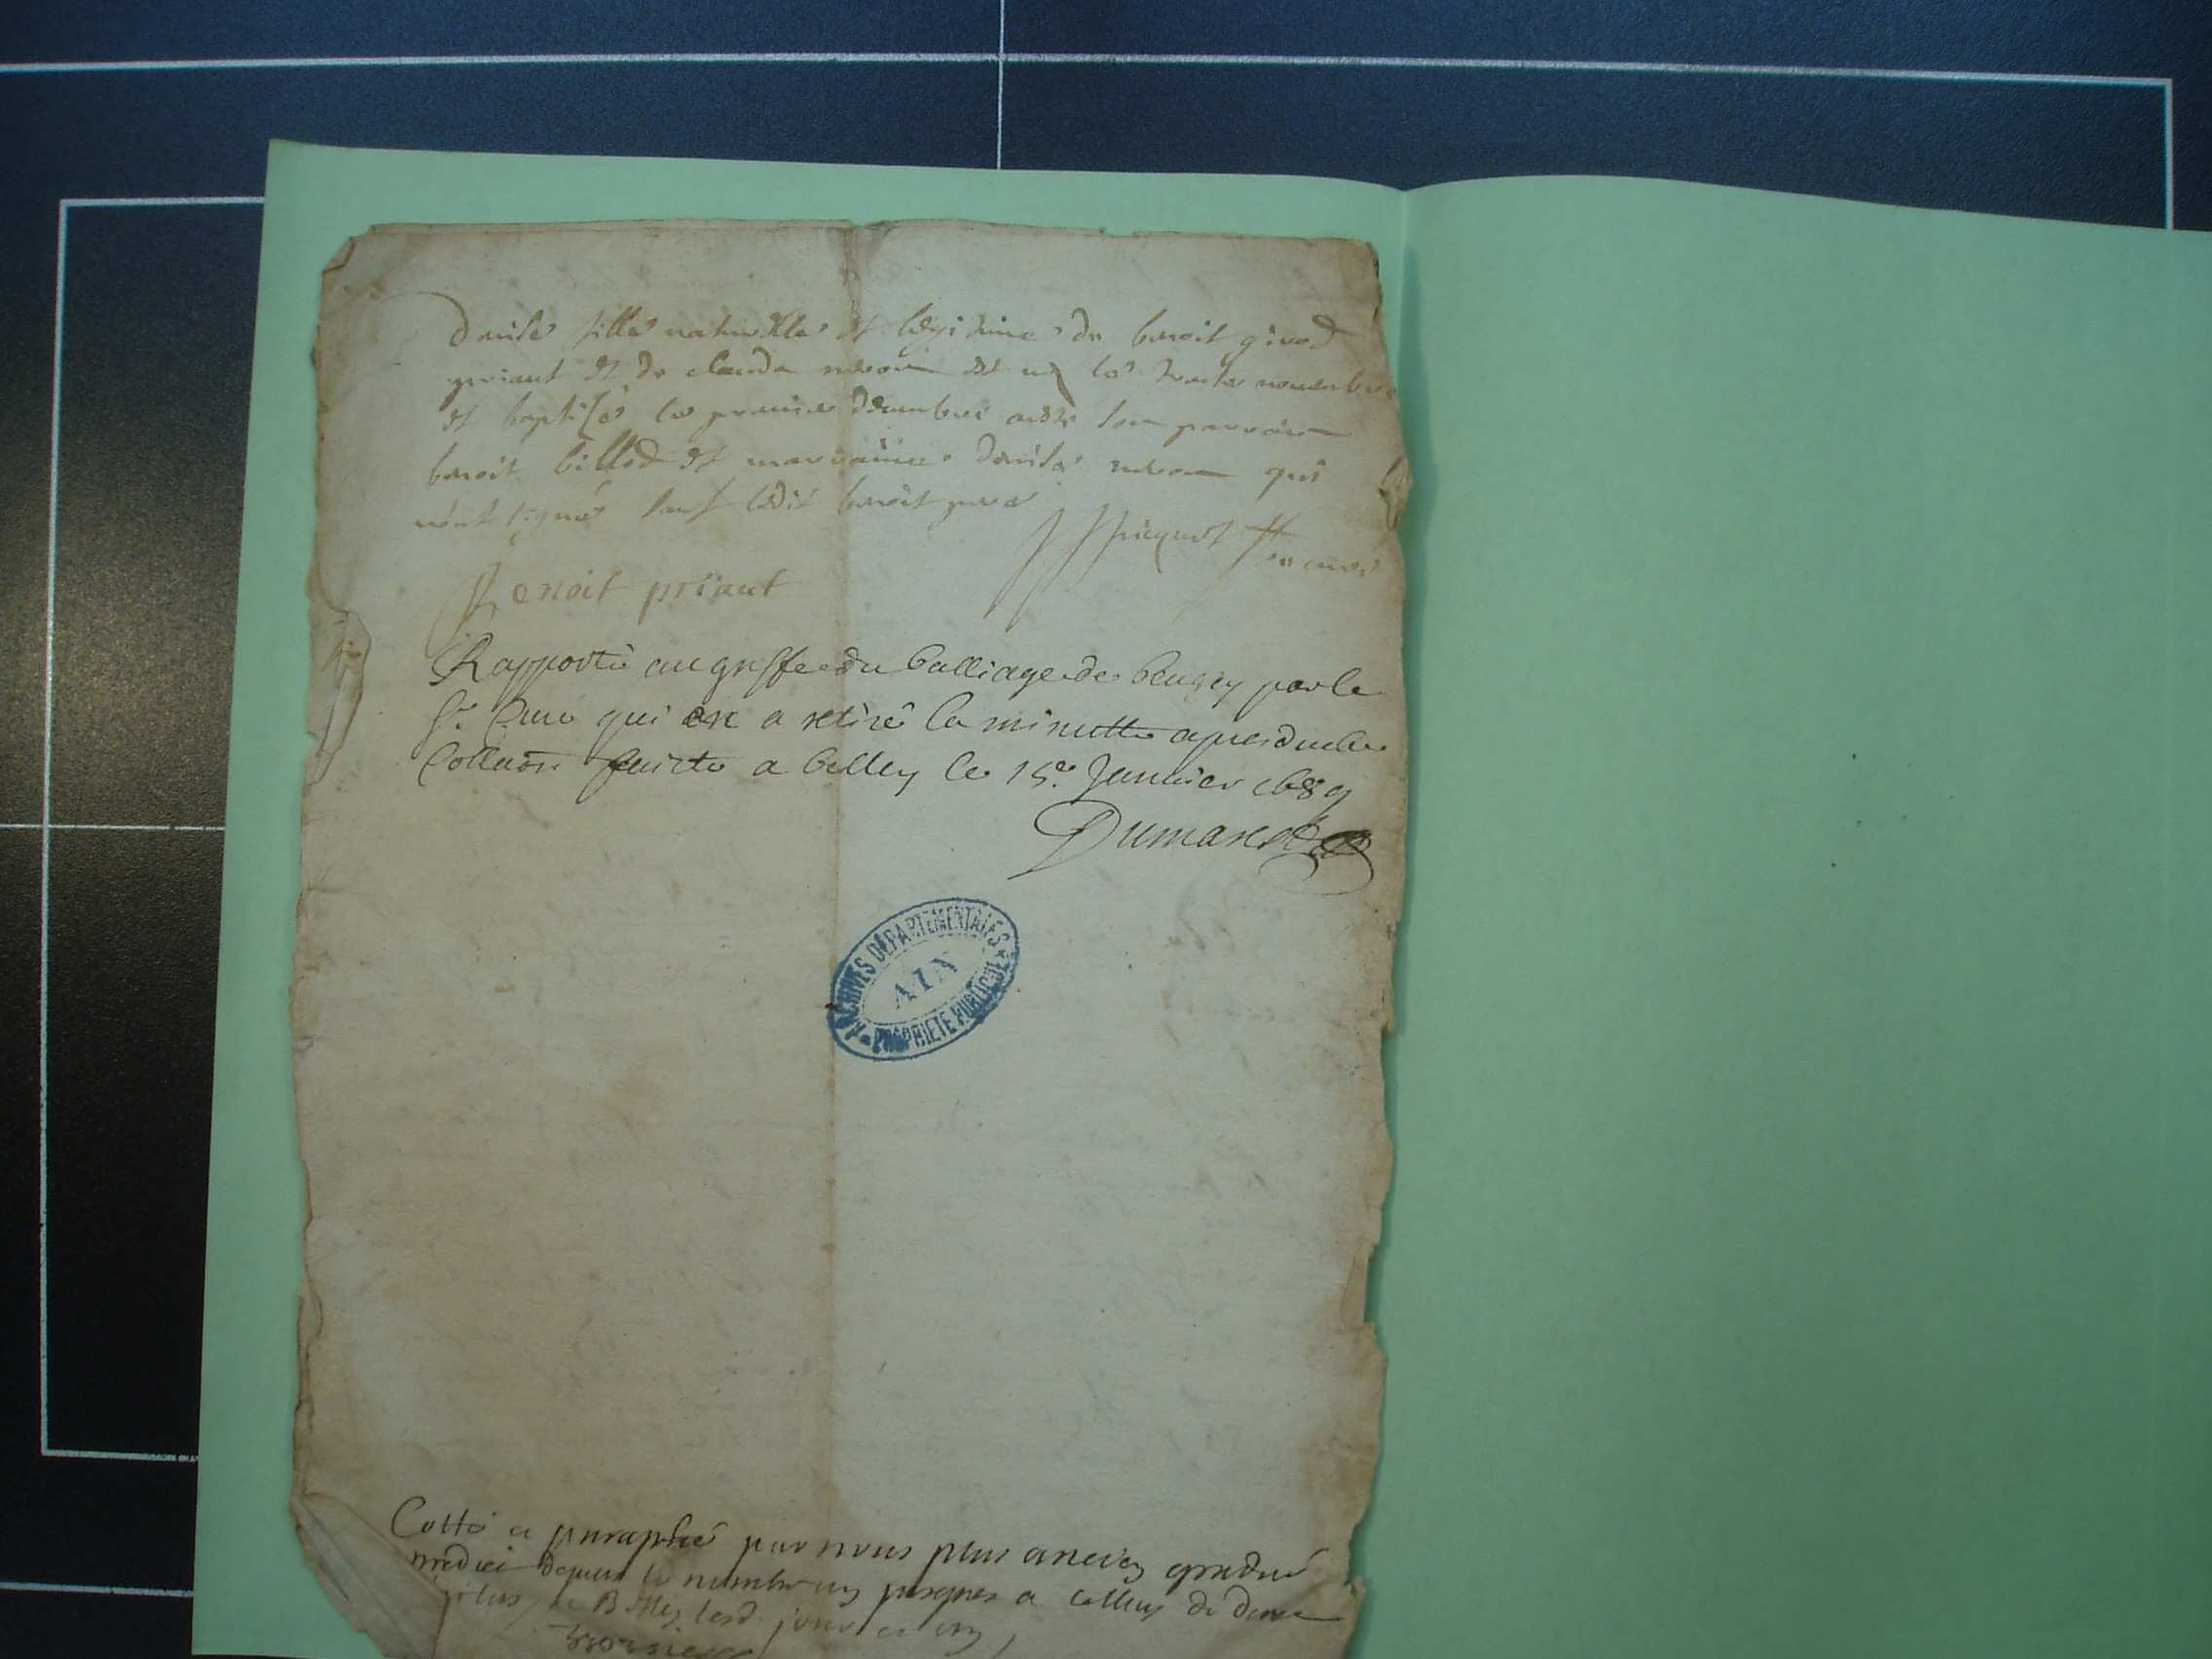 denise fille naturelle et legitime de benoit girod
priaut et de clauda est né le trente novembre
et baptisé le premier decembre son parrain
benoit billod et marraine denise qui
n'ont signé sauf ledit benoit
Benoit priaut
Rapporté au greffe du balliage de beugey par le
Sr. Curé qui en a retiré la minutte apres dueble
Collaon faicte a belley le 15e. Janvier 1689
Dumarest
ARCHIVES DÉPARTEMENTALES
AIN
PROPRIETE PUBLIQUE
Cotté et paraphé par nous plus ancien gradué
depuis le nombre un jusques a celluy de
a Belley lesd. jour et an